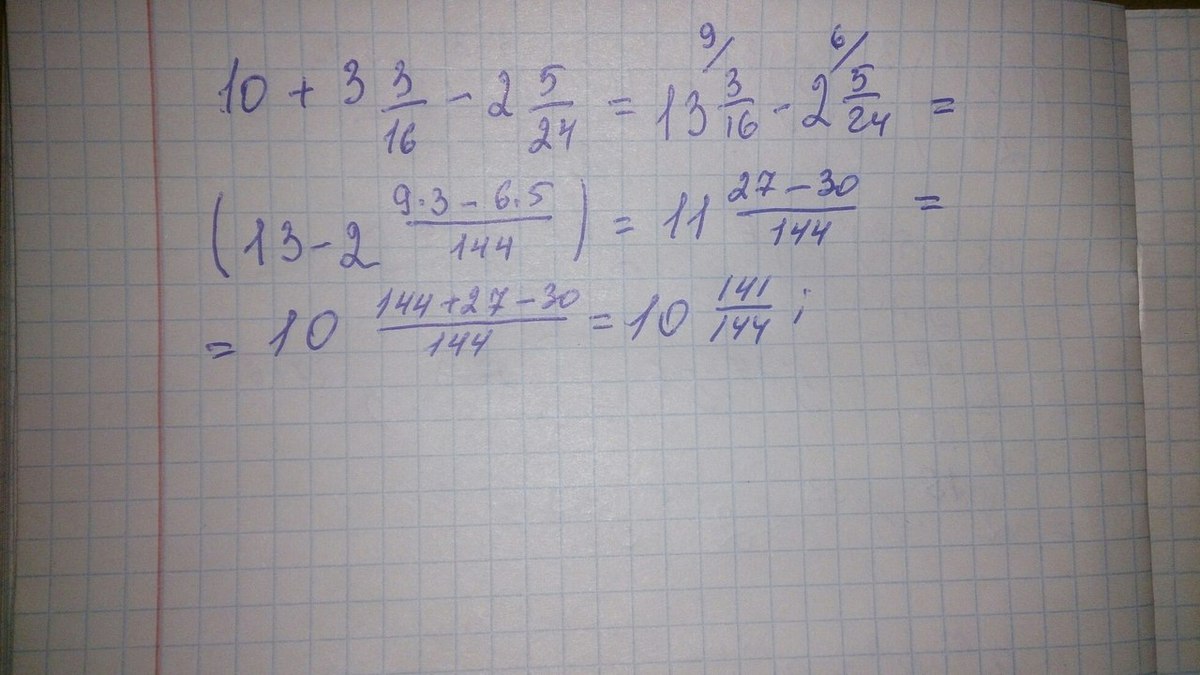 10 + 3 3/16 - 2 5/24 = 13 3/16 (9/) - 2 5/24 (6/) =
(13 - 2 (9·3 - 6·5)/144) = 11 (27 - 30)/144 =
= 10 (144 + 27 - 30)/144 = 10 141/144 ;